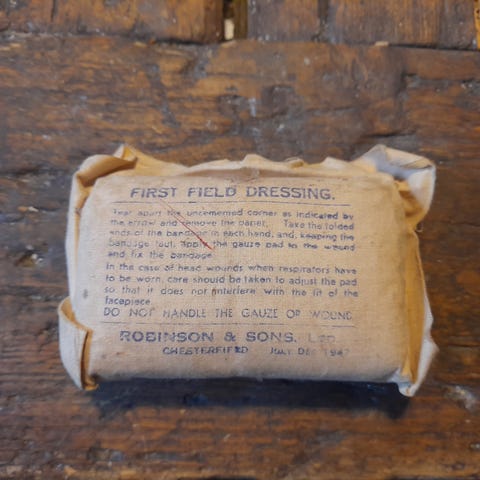 FIRST FIELD DRESSING.
Tear apart the uncemented corner as indicated by
the arrow and remove the paper. Take the folded
ends of the bandage in each hand, and, keeping the
bandage taut, apply the gauze pad to the wound
and fix the bandage.
In the case of head wounds when respirators have
to be worn, care should be taken to adjust the pad
so that it does not interfere with the fit of the
facepiece.
DO NOT HANDLE THE GAUZE OR WOUND
ROBINSON & SONS, LTD.
CHESTERFIELD